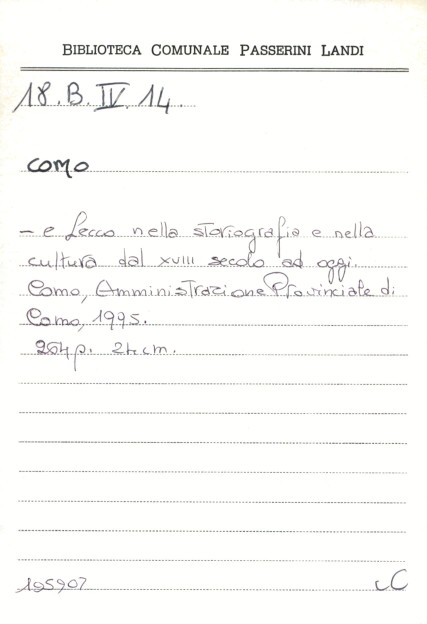 BIBLIOTECA COMUNALE PASSERINI LANDI
18.B.IV.14.
COMO
- e Lecco nella storiografia e nella
cultura dal XVIII secolo ad oggi.
Como, Amministrazione Provinciale di
Como, 1995.
264p. 24cm.
195907